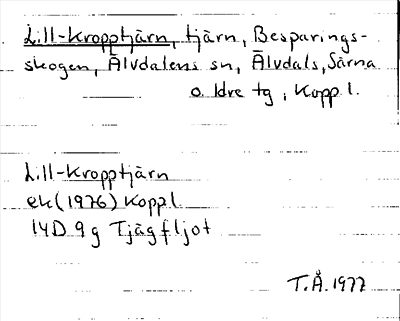 Lill-Kropptjärn, tjärn, Besparings-
skogen, Älvdalens sn, Älvdals, Särna
o. Idre tg, Kopp l.
Lill-Kropptjärn
ek (1976) Kopp l
14D 9g Tjägfljot
T.Å. 1977